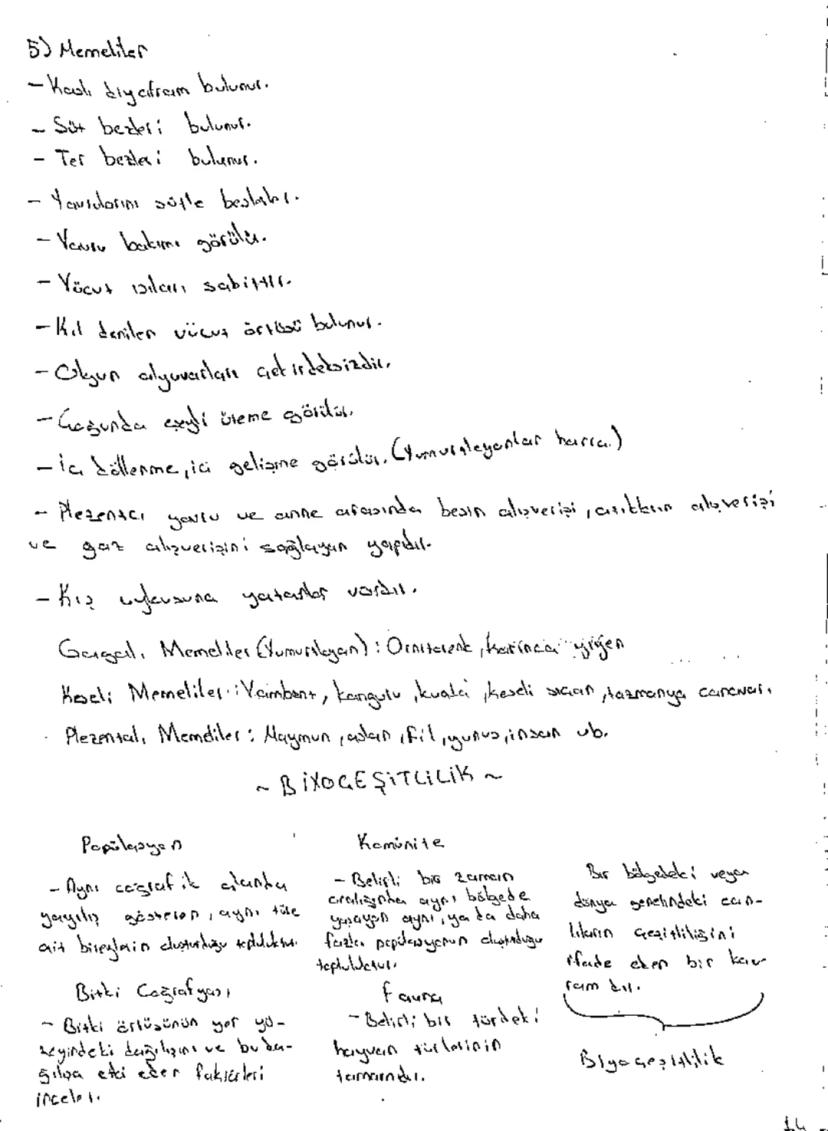 5) Memeliler
- Kaslı diyafram bulunur.
- Süt bezleri bulunur.
- Ter bezleri bulunur.
- Yavrularını sütle beslerler.
- Yavru bakımı görülür.
- Vücut ısıları sabittir.
- Kıl denilen vücut örtüsü bulunur.
- Olgun alyuvarları çekirdeksizdir.
- Çoğunda eşeyli üreme görülür.
- İç döllenme, iç gelişme görülür. (Yumurtlayanlar hariç.)
- Plezenta; yavru ve anne arasında besin alışverişi, atıkların alışverişi
ve gaz alışverişini sağlayan yapıdır.
- Kış uykusuna yatanlar vardır.
Gagalı Memeliler (Yumurtlayan): Ornitorenk, karınca yiyen
Keseli Memeliler: Vombant, kanguru, kuala, keseli sıçan, tazmanya canavarı.
Plezental Memeliler: Maymun, aslan, fil, yunus, insan vb.
~ BİYOÇEŞİTLİLİK ~
Popülasyon
- Aynı coğrafik alanda
yayılış gösteren, aynı türe
ait bireylerin oluşturduğu topluluktur.
Komünite
- Belirli bir zaman
aralığında aynı bölgede
yaşayan aynı, ya da daha
fazla popülasyonun oluşturduğu
topluluktur.
Bir bölgedeki veya
dünya genelindeki can-
lıların çeşitliliğini
ifade eden bir kav-
ramdır.
Biyoçeşitlilik
Bitki Coğrafyası
- Bitki örtüsünün yer yü-
zeyindeki dağılışını ve bu da-
ğılışa etki eden faktörleri
inceler.
Fauna
- Belirli bir türdeki
hayvan türlerinin
tamamıdır.
14